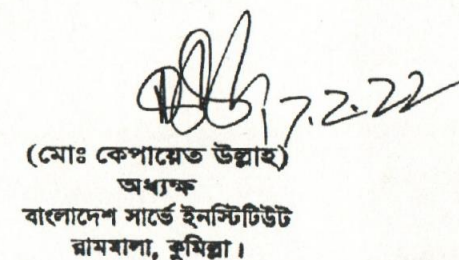 17.2.22
(মোঃ কেপায়েত উল্লাহ)
অধ্যক্ষ
বাংলাদেশ সার্ভে ইনস্টিটিউট
রামমালা, কুমিল্লা।